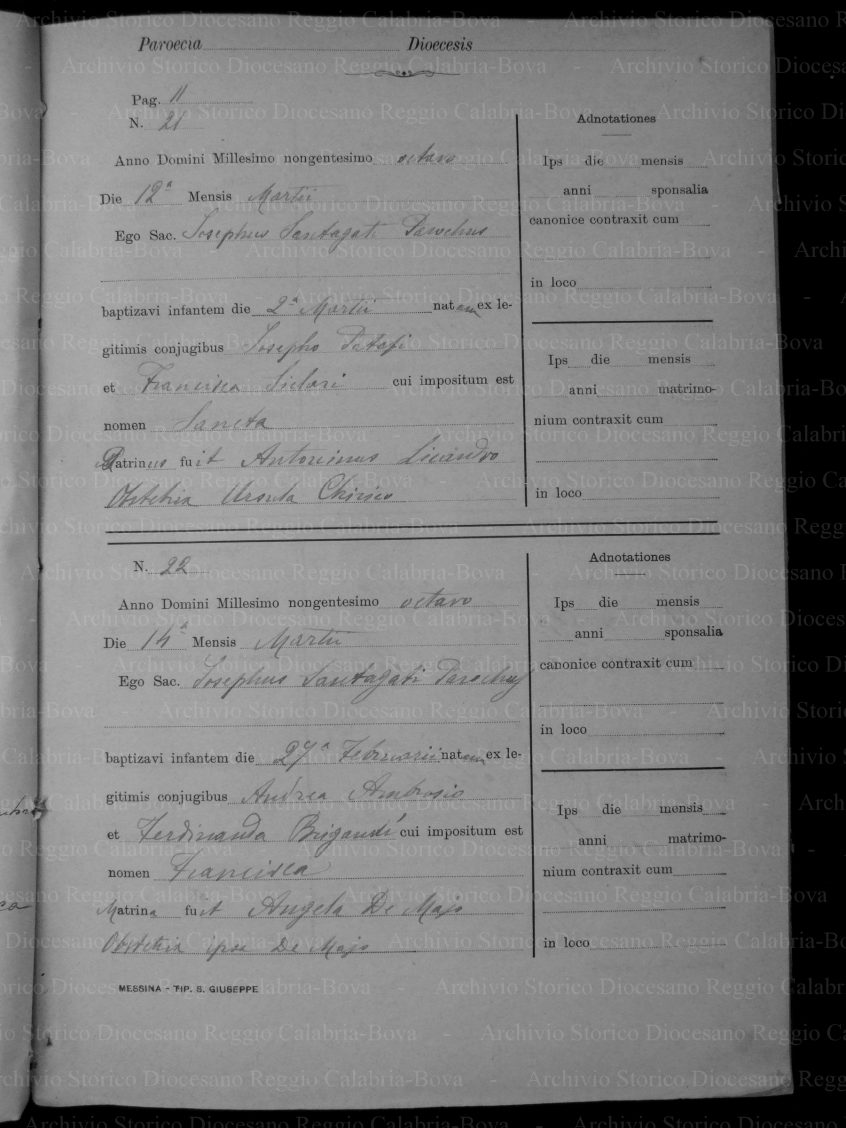 Paroecia Dioecesis
Pag. 11
N. 21
Anno Domini Millesimo nongentesimo octavo
Die 12ª Mensis Martii
Ego Sac. Josephus Santagati Parochus
baptizavi infantem die 2ª Martii natam ex le-
gitimis conjugibus Josepho
et Francisca cui impositum est
nomen Sancta
Patrinus fuit Antoninus Licandro
Obstetrix Ursula Chirico
Adnotationes
Ips die mensis
anni sponsalia
canonice contraxit cum
in loco
Ips die mensis
anni matrimo-
nium contraxit cum
in loco
N. 22
Anno Domini Millesimo nongentesimo octavo
Die 14ª Mensis Martii
Ego Sac. Josephus Santagati Parochus
baptizavi infantem die 27ª Februarii natam ex le-
gitimis conjugibus Andrea Ambrosio
et Ferdinanda Brigandì cui impositum est
nomen Francisca
Matrina fuit Angela De Majo
Obstetrix ipsa De Majo
Adnotationes
Ips die mensis
anni sponsalia
canonice contraxit cum
in loco
Ips die mensis
anni matrimo-
nium contraxit cum
in loco
MESSINA - TIP. S. GIUSEPPE
Archivio Storico Diocesano Reggio Calabria-Bova